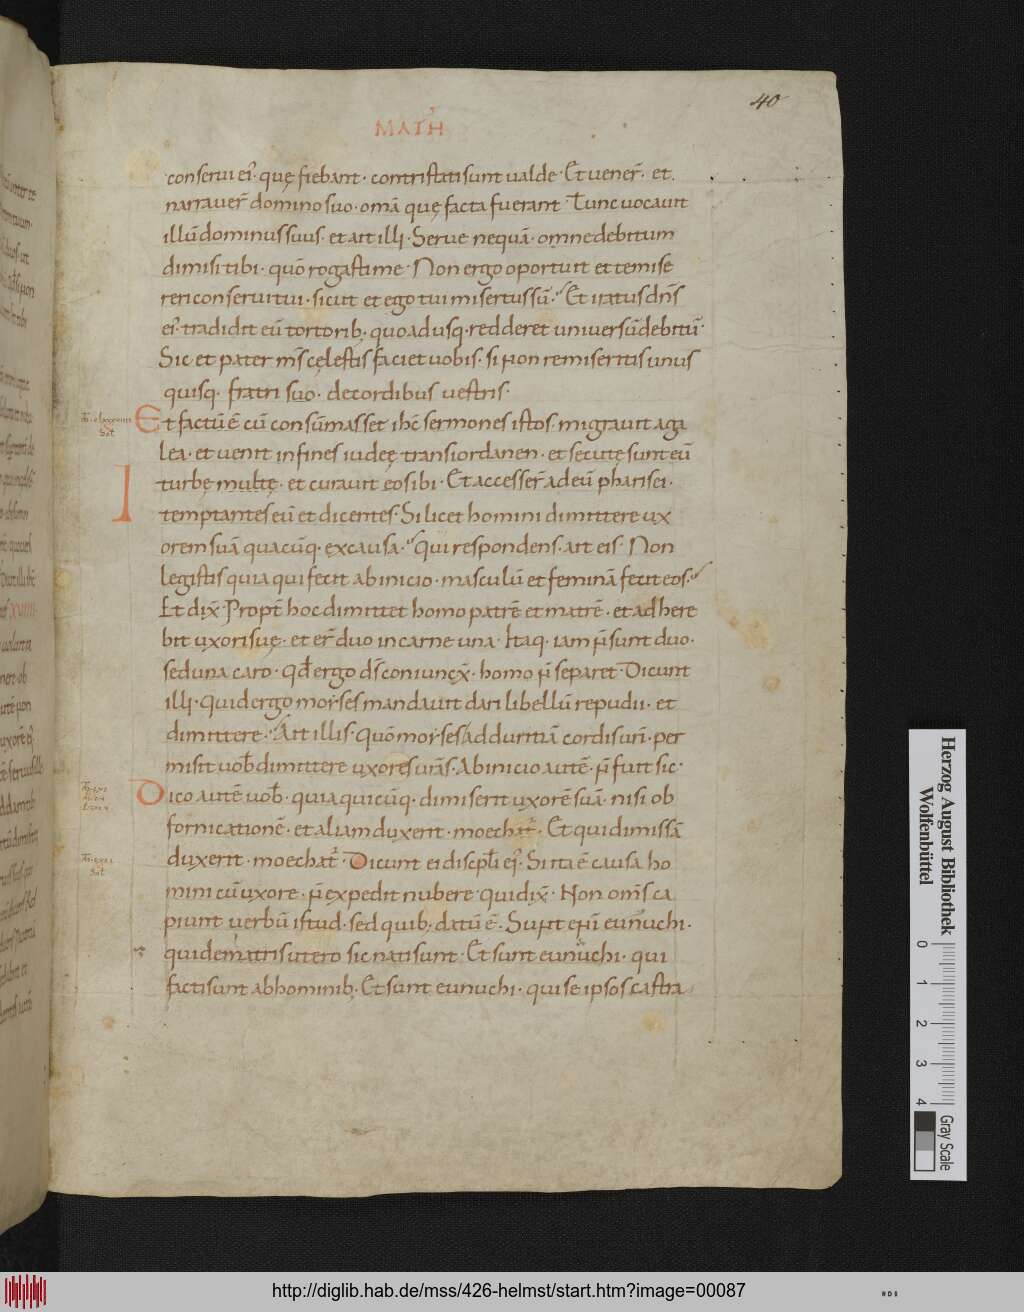 40
MATH
conserui ei᾽· quę fiebant· contristati sunt ualde· Et uener̄· et
narrauer̄ domino suo· om̄a quę facta fuerant· Tunc uocauit
illū dominus suus· et ait illi· Serue nequā· omne debitum
dimisi tibi· quō rogasti me· Non ergo oportuit et te mise
reri conserui tui· sicut et ego tui misertus sū· Et iratus dn̄s
ei᾽· tradidit eū tortorib; quoadusq· redderet uniuersū debitū·
Sic et pater m̄s cęlestis faciet uobis· si non remiseritis unus
quisq· fratri suo· de cordibus uestris·
Et factū ē cū consūmasset ihc̄ sermones istos· migrauit a ga
lea· et uenit in fines iudeę trans iordanen· et secutę sunt eū
turbę multę· et curauit eos ibi· Et accesser̄ ad eū pharisei·
temptantes eū et dicentes· Si licet homini dimittere ux
orem suā quacūq· ex causa· Qui respondens· ait eis· Non
legistis quia qui fecit ab inicio· masculū et feminā fecit eos·
Et dix̄· Propt̄ hoc dimittet homo patrē et matrē· et adhere
bit uxori suę· et er̄ duo in carne una· Itaq· iam n̄ sunt duo·
sed una caro· qd̄ ergo ds̄ coniunx̄· homo n̄ separet· Dicunt
illi· Quid ergo moyses mandauit dari libellū repudii· et
dimittere· Ait illis· Quō moyses ad duritiā cordis ur̄i· per
misit uob̄ dimittere uxores urā̄s· Ab inicio autē· n̄ fuit sic·
Dico autē uob̄· quia quicūq· dimiserit uxorē suā· nisi ob
fornicationē· et aliam duxerit· moechat᾽· Et qui dimissā
duxerit· moechat᾽· Dicunt ei discipl̄i ei᾽· Si ita ē causa ho
mini cū uxore· n̄ expedit nubere· qui dix̄· Non om̄s ca
piunt uerbū istud· sed quib; datū ē· Sunt eni̅ eunuchi·
qui de matris utero sic nati sunt· Et sunt eunuchi· qui
facti sunt ab hominib; Et sunt eunuchi· qui se ipsos castra
Herzog August Bibliothek
Wolfenbüttel
0 1 2 3 4
Gray Scale
http://diglib.hab.de/mss/426-helmst/start.htm?image=00087